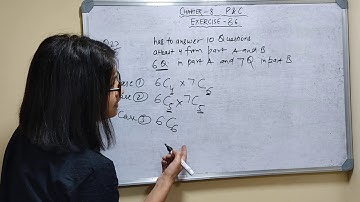 CHAPTER-8 P&C
EXERCISE-8.6
Q27 has to answer 10 Questions
atleast 4 from part A and B
6Q in part A and 7Q in part B
Case ① 6C₄ × 7C₆
Case ② 6C₅ × 7C₅
Case ③ 6C₆